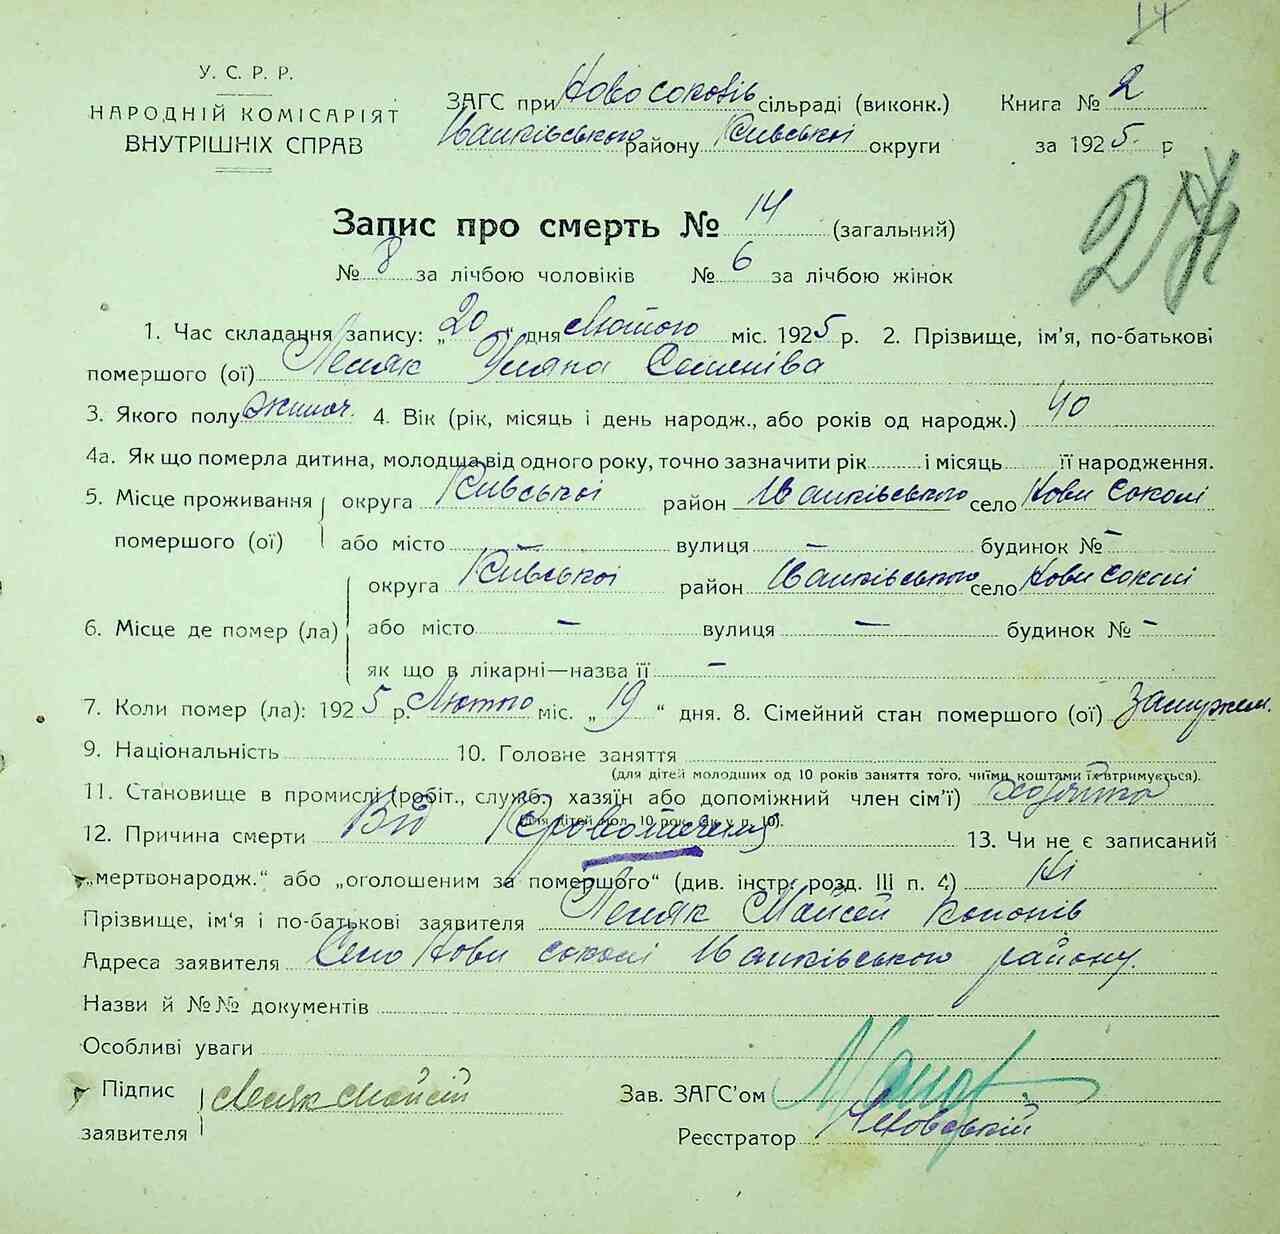 14
У. С. Р. Р.
НАРОДНІЙ КОМІСАРІЯТ
ВНУТРІШНІХ СПРАВ
ЗАГС при Ново Соколів сільраді (виконк.)
Іванківського району Київської округи
Книга № 2
за 1925 р
Запис про смерть № 14 (загальний)
№ 8 за лічбою чоловіків № 6 за лічбою жінок
1. Час складання запису: „20“ дня Лютого міс. 1925 р. 2. Прізвище, ім'я, по-батькові
помершого (ої) Уляна Семеніва
3. Якого полу жиноч. 4. Вік (рік, місяць і день народж., або років од народж.) 40
4а. Як що померла дитина, молодша від одного року, точно зазначити рік і місяць її народження.
5. Місце проживання помершого (ої) округа Київської район Іванківського село Нови Соколі
або місто — вулиця — будинок № —
6. Місце де помер (ла) округа Київської район Іванківського село Нови Соколі
або місто — вулиця — будинок № —
як що в лікарні—назва її —
7. Коли помер (ла): 1925 р. Лютого міс. „19“ дня. 8. Сімейний стан помершого (ої) Замужем.
9. Національність 10. Головне заняття
(для дітей молодших од 10 років заняття того, чиїми коштами їх втримується).
11. Становище в промислі (робіт., служб., хазяїн або допоміжний член сім'ї)
(для дітей мол. 10 рок. як у п. 10).
12. Причина смерти Від 13. Чи не є записаний
„мертвонародж.“ або „оголошеним за помершого“ (див. інстр. розд. III п. 4) Ні
Прізвище, ім'я і по-батькові заявителя Мойсей
Адреса заявителя Село Нови Соколі Іванківського району.
Назви й №№ документів
Особливі уваги
Підпис заявителя
Зав. ЗАГС'ом
Реєстратор